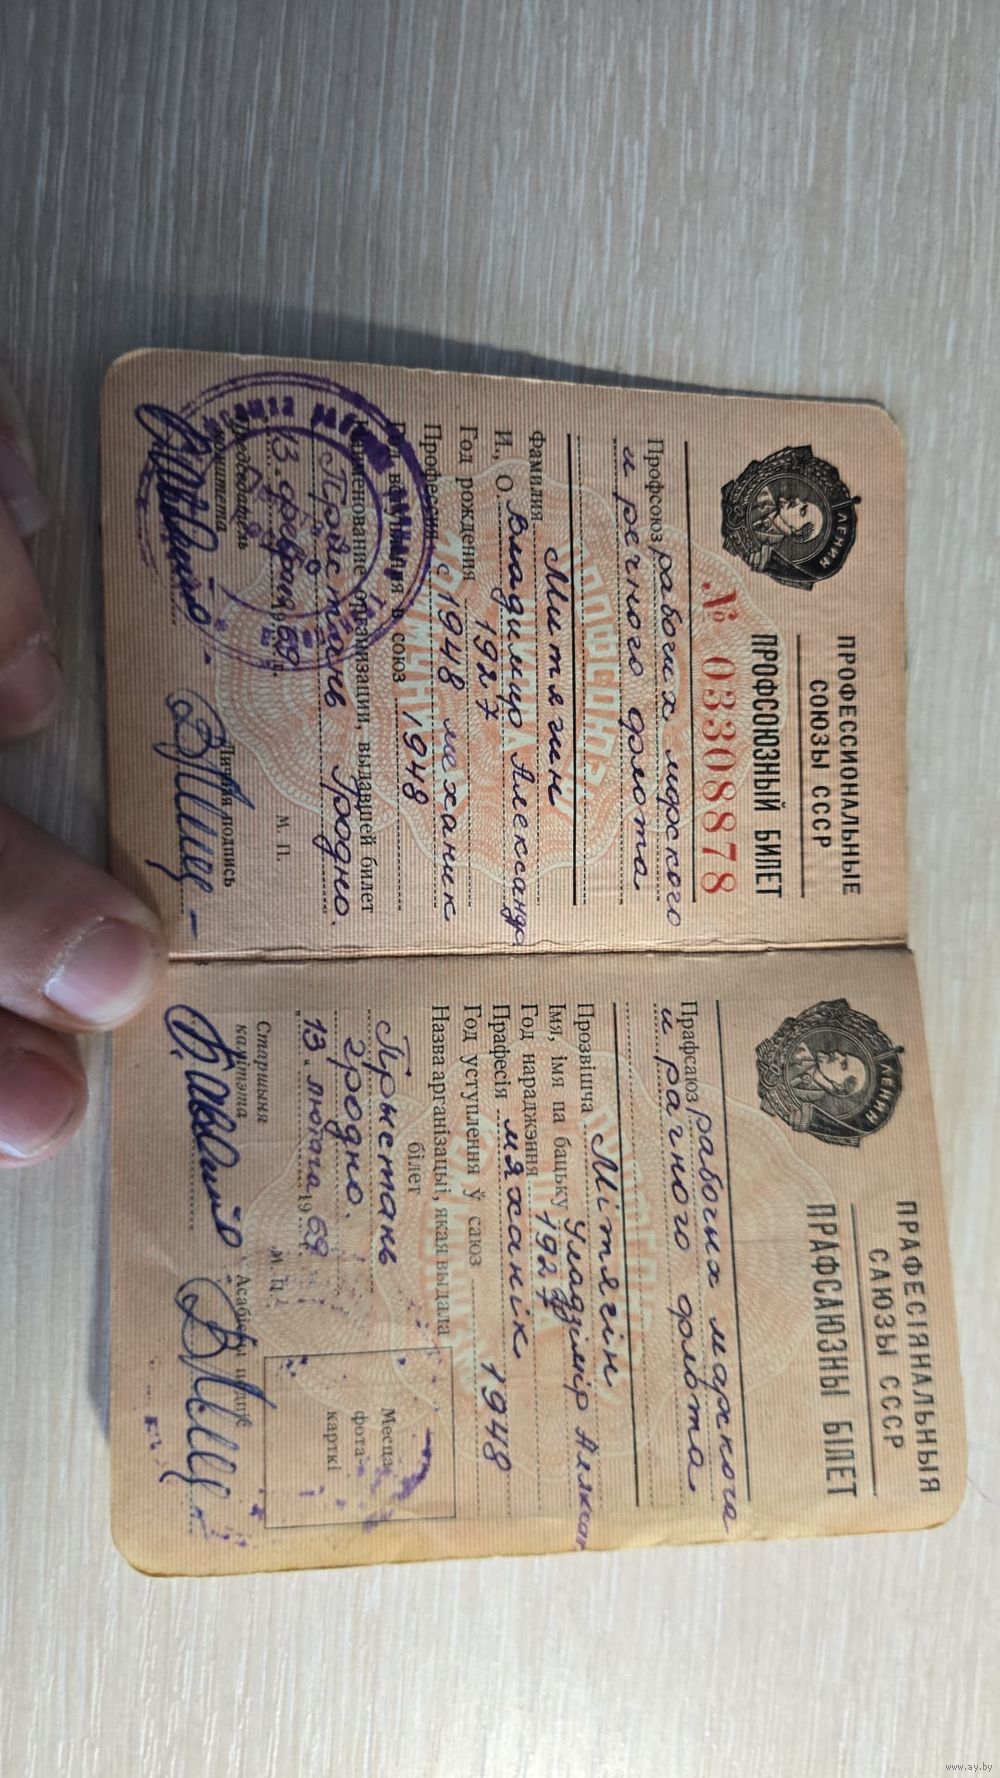 ПРОФЕССИОНАЛЬНЫЕ
СОЮЗЫ СССР
ПРОФСОЮЗНЫЙ БИЛЕТ
ЛЕНИН
№ 03308878
Профсоюз рабочих морского
и речного флота
Фамилия Митягин
И., О. Владимир Александр
Год рождения 1927
Профессия с 1948 механик
Год вступления в союз 1948
Наименование организации, выдавшей билет
Пристань Гродно.
13 февраля 1969 г.
М. П.
Председатель
комитета
Личная подпись
ПРАФЕСІЯНАЛЬНЫЯ
САЮЗЫ СССР
ПРАФСАЮЗНЫ БІЛЕТ
ЛЕНИН
Прафсаюз рабочих марскога
и рачного флота
Прозвішча Мітягін
Імя, імя па бацьку Уладзімір Аляксан
Год нараджэння 1927
Прафесія мяханік
Год уступлення ў саюз 1948
Назва арганізацыі, якая выдала
білет
Прыстань
гродно.
"13" лютага 1969
М. П.
Старшыня
камітэта
Асабісты подпіс
Месца
фота-
карткі
www.ay.by